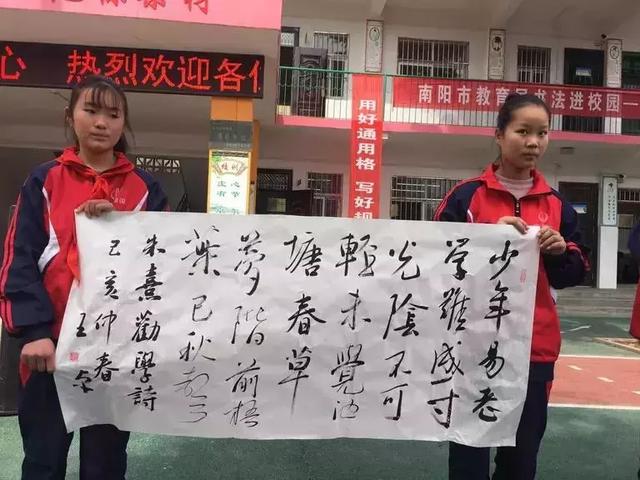 心 热烈欢迎各
南阳市教育局书法进校园
用好通用格 写好规
少年易老
学難成寸
光陰不可
輕未覺池
塘春草
夢階前梧
葉已秋声
朱熹勸學詩
己亥仲春
王